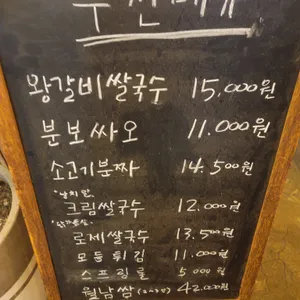 추천메뉴
왕갈비쌀국수 15,000원
분보싸오 11.000원
소고기분짜 14.500원
크림쌀국수 12.000원
로제쌀국수 13.500원
모듬튀김 11.000원
스프링롤 5000원
월남쌈 42.000원